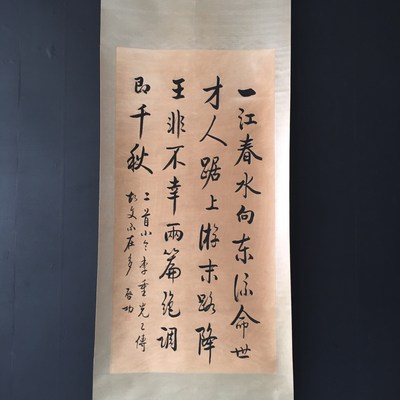 一江春水向东流命世
才人踞上游末路降
王非不幸两篇绝调
即千秋
二首小令李重光之传
故文不在多 启功